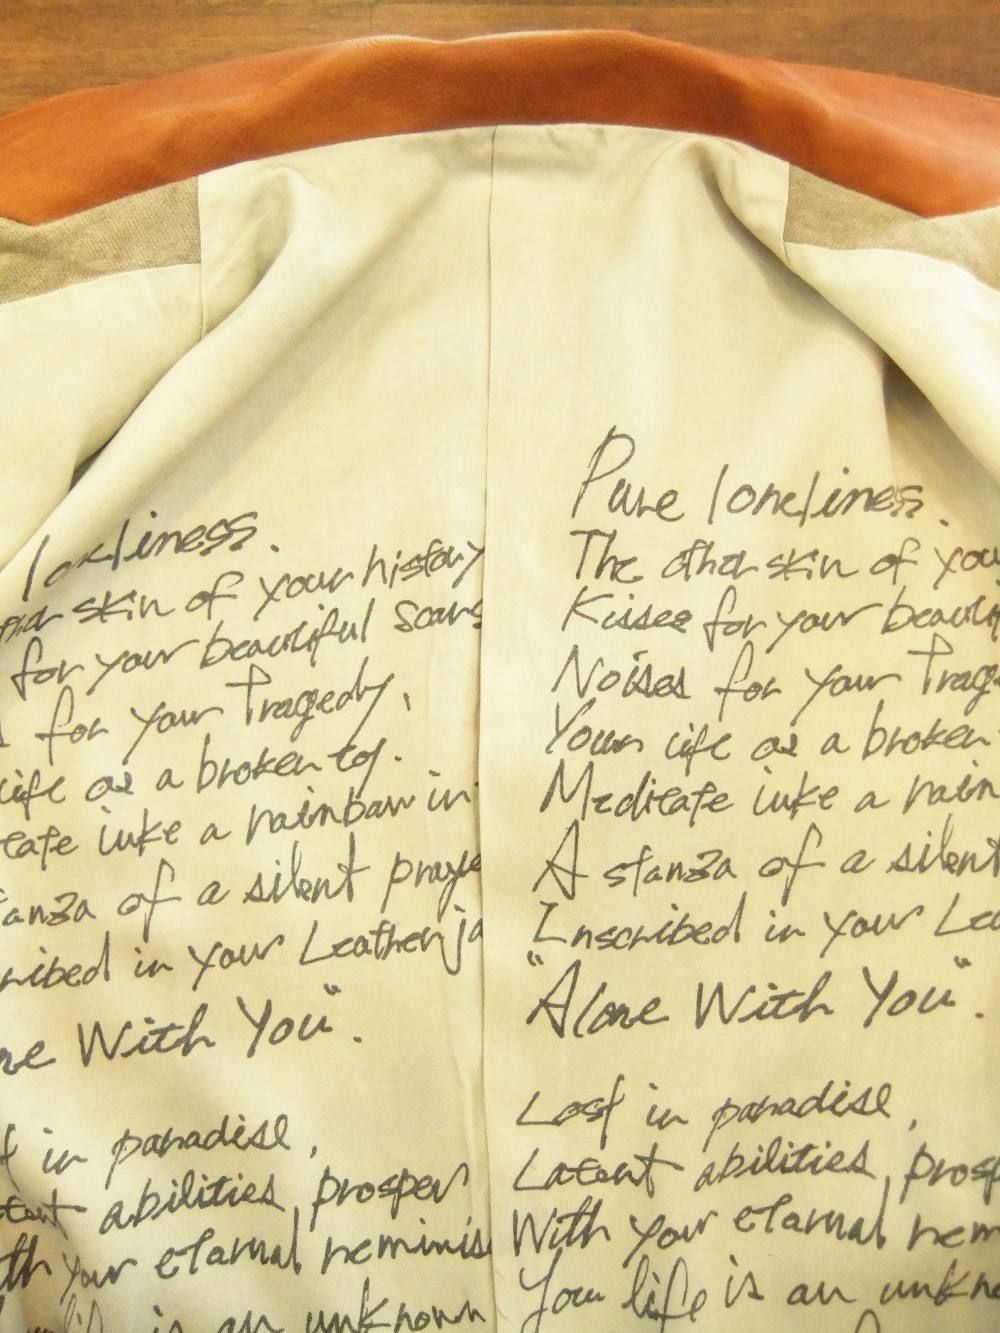 loneliness.
ther skin of your history
for your beautiful scars
s for your Tragedy,
life as a broken toy.
tate luke a rainbow in
tanza of a silent praye
cribed in your Leather ja
ne With You".
t in paradise,
tent abilities prosper
th your eternal reminis
life is an unknown
Pure loneliness.
The other skin of you
Kisses for your beautif
Noises for your Trage
Your life as a broken
Meditate luke a rain
A stanza of a silent
Inscribed in your Lea
"Alone With You".
Lost in paradise,
Latent abilities prosp
With your eternal rem
Your life is an unkno